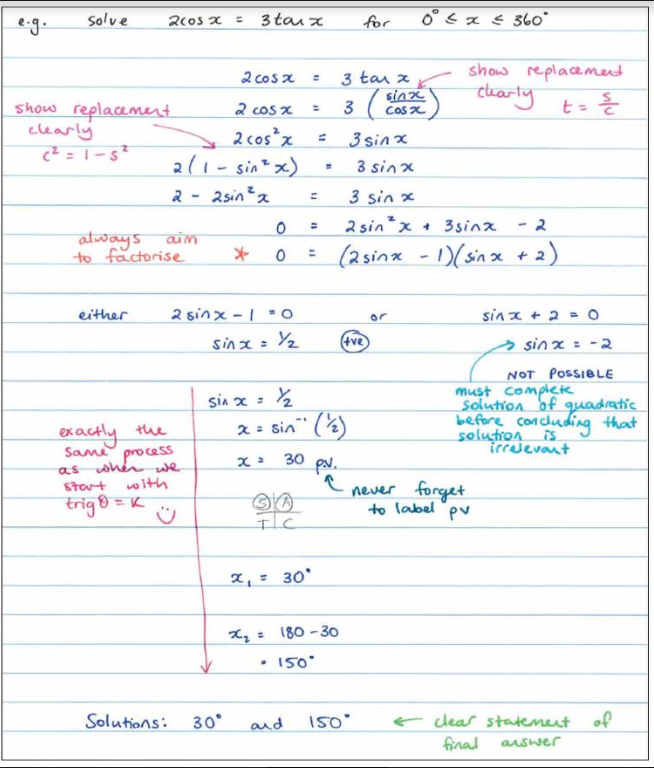 e.g. solve 2cosx = 3tanx for 0° ≤ x ≤ 360°
2cosx = 3 tan x
show replacement clearly t = s/c
2 cosx = 3 (sinx/cosx)
show replacement clearly c² = 1 - s²
2cos²x = 3sinx
2(1 - sin²x) = 3sinx
2 - 2sin²x = 3 sin x
0 = 2sin²x + 3sinx - 2
always aim to factorise
* 0 = (2sinx - 1)(sinx + 2)
either 2sinx - 1 = 0 or sinx + 2 = 0
sinx = 1/2 +ve sinx = -2
NOT POSSIBLE
must complete
solution of quadratic
before concluding that
solution is
irrelevant
exactly the
same process
as when we
start with
trigθ = K
sinx = 1/2
x = sin⁻¹(1/2)
x = 30 pv.
never forget
to label pv
S A
T C
x₁ = 30°
x₂ = 180 - 30
= 150°
Solutions: 30° and 150° ← clear statement of
final answer